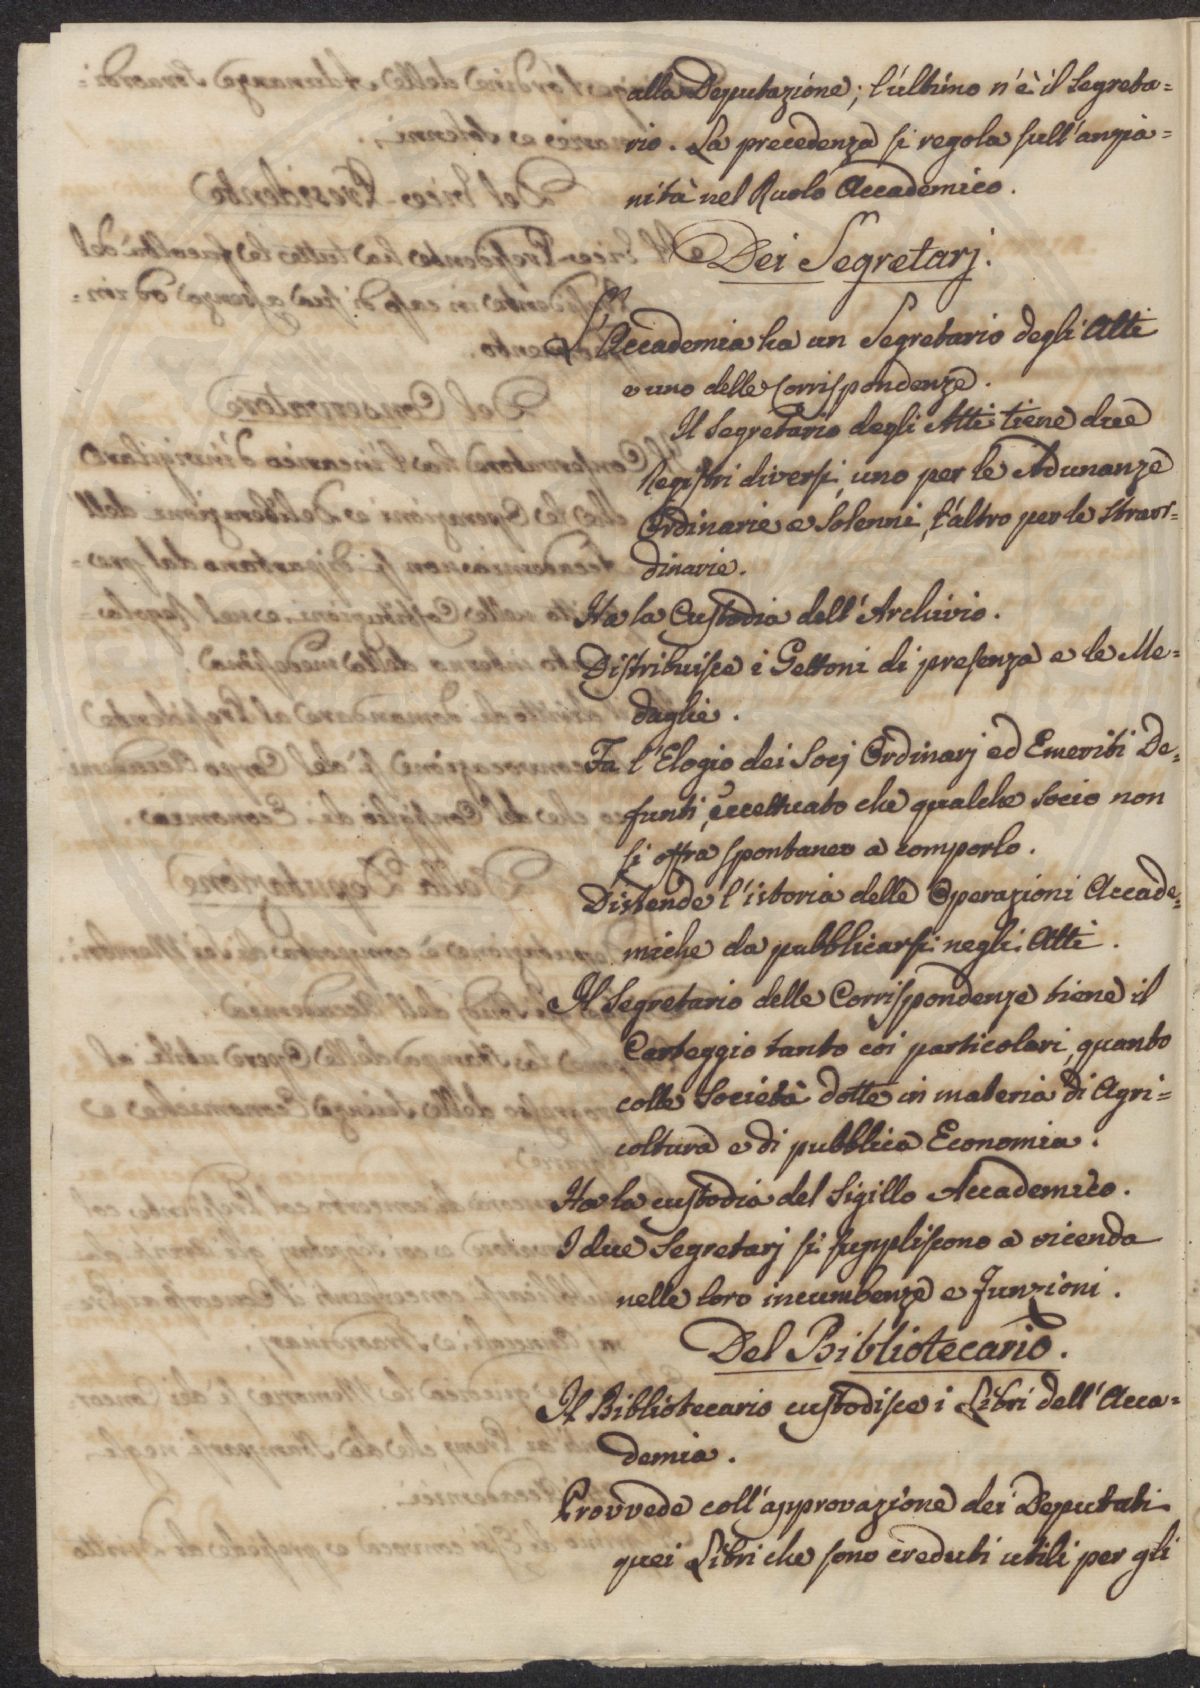 alla Deputazione; l'ultimo n'è il Segreta=
rio. La precedenza si regola sull'anzia=
nità nel Ruolo Accademico.
Dei Segretarj.
L'Accademia ha un Segretario degli Atti
e uno delle Corrispondenze.
Il Segretario degli Atti tiene due
Registri diversi, uno per le Adunanze
Ordinarie e Solenni, l'altro per le Straor=
dinarie.
Ha la Custodia dell'Archivio.
Distribuisce i Gettoni di presenza e le Me=
daglie.
Fa l'Elogio dei Socj Ordinarj ed Emeriti De=
funti, eccettuato che qualche Socio non
si offra spontaneo a comporlo.
Distende l'istoria delle Operazioni Accade=
miche da pubblicarsi negli Atti.
Il Segretario delle Corrispondenze tiene il
Carteggio tanto coi particolari, quanto
colle Società dotte in materia di Agri=
coltura e di pubblica Economia.
Ha la custodia del Sigillo Accademico.
I due Segretarj si suppliscono a vicenda
nelle loro incumbenze e Funzioni.
Del Bibliotecario.
Il Bibliotecario custodisce i Libri dell'Acca=
demia.
Provvede coll'approvazione dei Deputati
quei Libri che sono creduti utili per gli